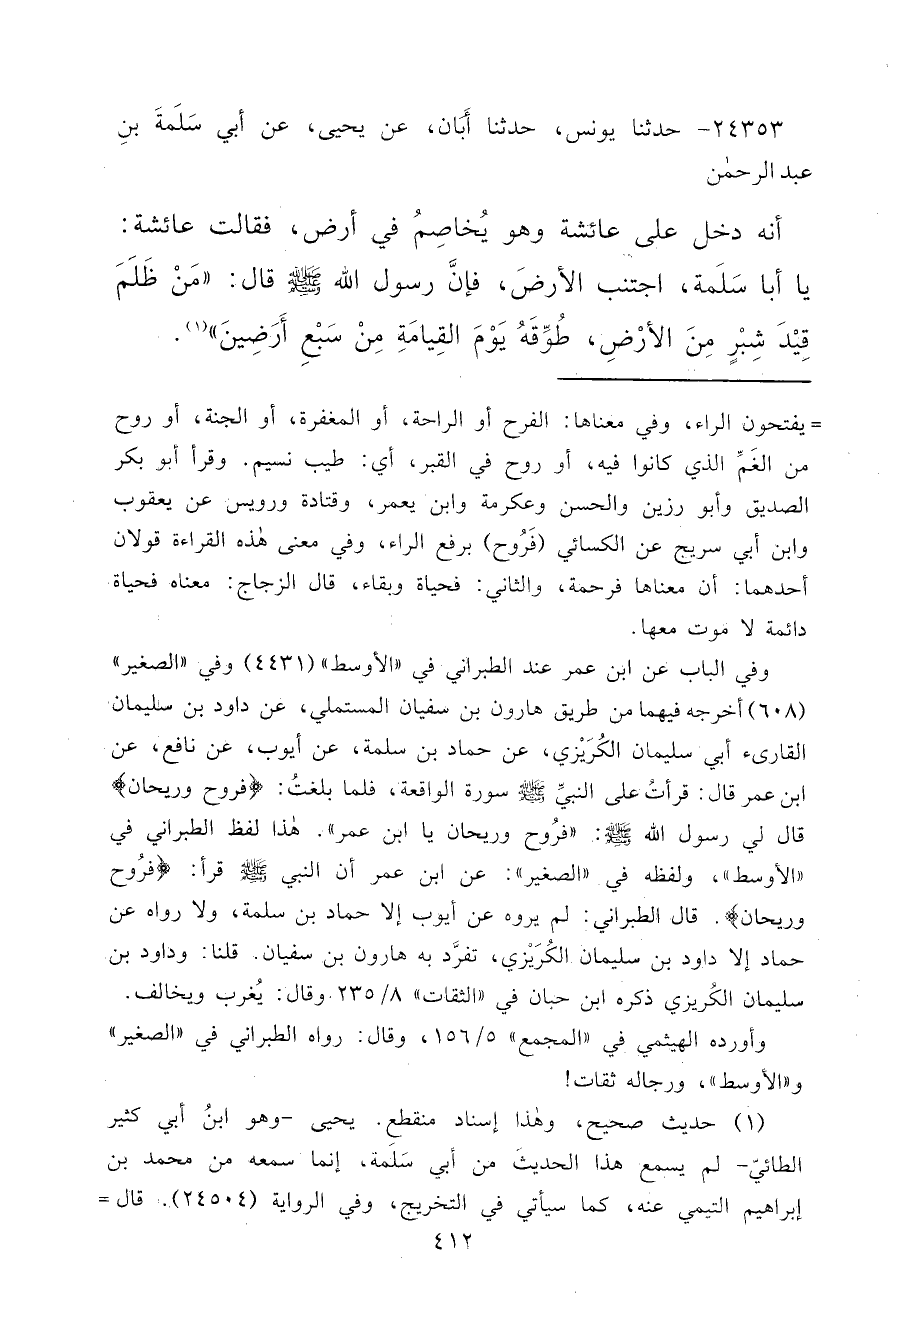 ٢٤٣٥٣- حدثنا يونس، حدثنا أَبَان، عن يحيى، عن أبي سَلَمةَ بنِ
عبد الرحمٰن
أنه دخل على عائشة وهو يُخاصِمُ في أرض، فقالت عائشة:
يا أبا سَلَمة، اجتنب الأرضَ، فإنَّ رسول الله ﷺ قال: «مَنْ ظَلَمَ
قِيْدَ شِبْرٍ مِنَ الأرْضِ، طُوِّقَهُ يَوْمَ القِيامَةِ مِنْ سَبْعِ أَرَضِينَ»(١).
= يفتحون الراء، وفي معناها: الفرح أو الراحة، أو المغفرة، أو الجنة، أو روح
من الغَمِّ الذي كانوا فيه، أو روح في القبر، أي: طيب نسيم. وقرأ أبو بكر
الصديق وأبو رزين والحسن وعكرمة وابن يعمر، وقتادة ورويس عن يعقوب
وابن أبي سريج عن الكسائي (فَرُوح) برفع الراء، وفي معنى هٰذه القراءة قولان
أحدهما: أن معناها فرحمة، والثاني: فحياة وبقاء، قال الزجاج: معناه فحياة
دائمة لا موت معها.
وفي الباب عن ابن عمر عند الطبراني في «الأوسط» (٤٤٣١) وفي «الصغير»
(٦٠٨) أخرجه فيهما من طريق هارون بن سفيان المستملي، عن داود بن سليمان
القارىء أبي سليمان الكُرَيْزي، عن حماد بن سلمة، عن أيوب، عن نافع، عن
ابن عمر قال: قرأتُ على النبيِّ ﷺ سورة الواقعة، فلما بلغتُ: ﴿فروح وريحان﴾
قال لي رسول الله ﷺ: «فرُوح وريحان يا ابن عمر». هٰذا لفظ الطبراني في
«الأوسط»، ولفظه في «الصغير»: عن ابن عمر أن النبي ﷺ قرأ: ﴿فرُوح
وريحان﴾. قال الطبراني: لم يروه عن أيوب إلا حماد بن سلمة، ولا رواه عن
حماد إلا داود بن سليمان الكُرَيْزي، تفرَّد به هارون بن سفيان. قلنا: وداود بن
سليمان الكُريزي ذكره ابن حبان في «الثقات» ٢٣٥/٨ وقال: يُغرب ويخالف.
وأورده الهيثمي في «المجمع» ١٥٦/٥، وقال: رواه الطبراني في «الصغير»
و«الأوسط»، ورجاله ثقات!
(١) حديث صحيح، وهٰذا إسناد منقطع. يحيى -وهو ابنُ أبي كثير
الطائيّ- لم يسمع هذا الحديثَ من أبي سَلَمة، إنما سمعه من محمد بن
إبراهيم التيمي عنه، كما سيأتي في التخريج، وفي الرواية (٢٤٥٠٤). قال =
٤١٢